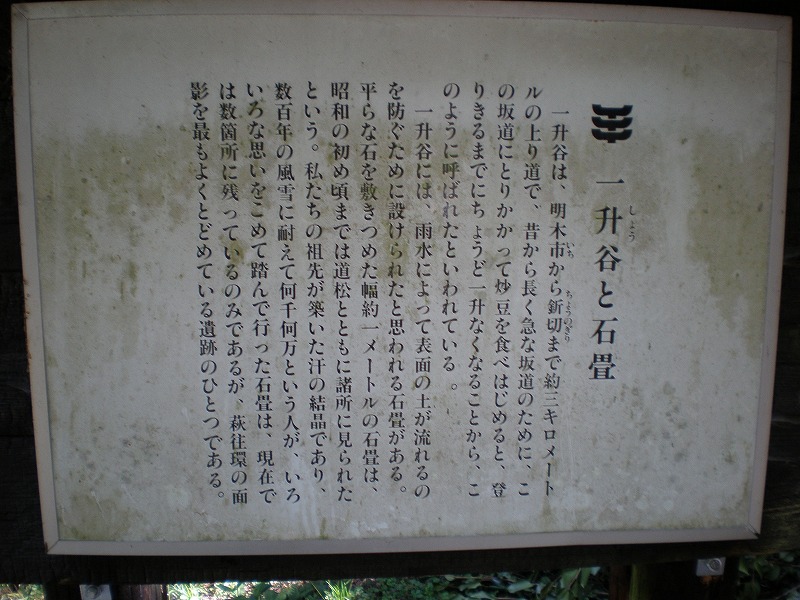 一升谷と石畳
しょう
一升谷は、明木市から釿切まで約三キロメート
いち
ちょうのぎり
ルの上り道で、昔から長く急な坂道のために、こ
の坂道にとりかかって炒豆を食べはじめると、登
りきるまでにちょうど一升なくなることから、こ
のように呼ばれたといわれている。
一升谷には、雨水によって表面の土が流れるの
を防ぐために設けられたと思われる石畳がある。
平らな石を敷きつめた幅約一メートルの石畳は、
昭和の初め頃までは道松とともに諸所に見られた
という。私たちの祖先が築いた汗の結晶であり、
数百年の風雪に耐えて何千何万という人が、いろ
いろな思いをこめて踏んで行った石畳は、現在で
は数箇所に残っているのみであるが、萩往環の面
影を最もよくとどめている遺跡のひとつである。